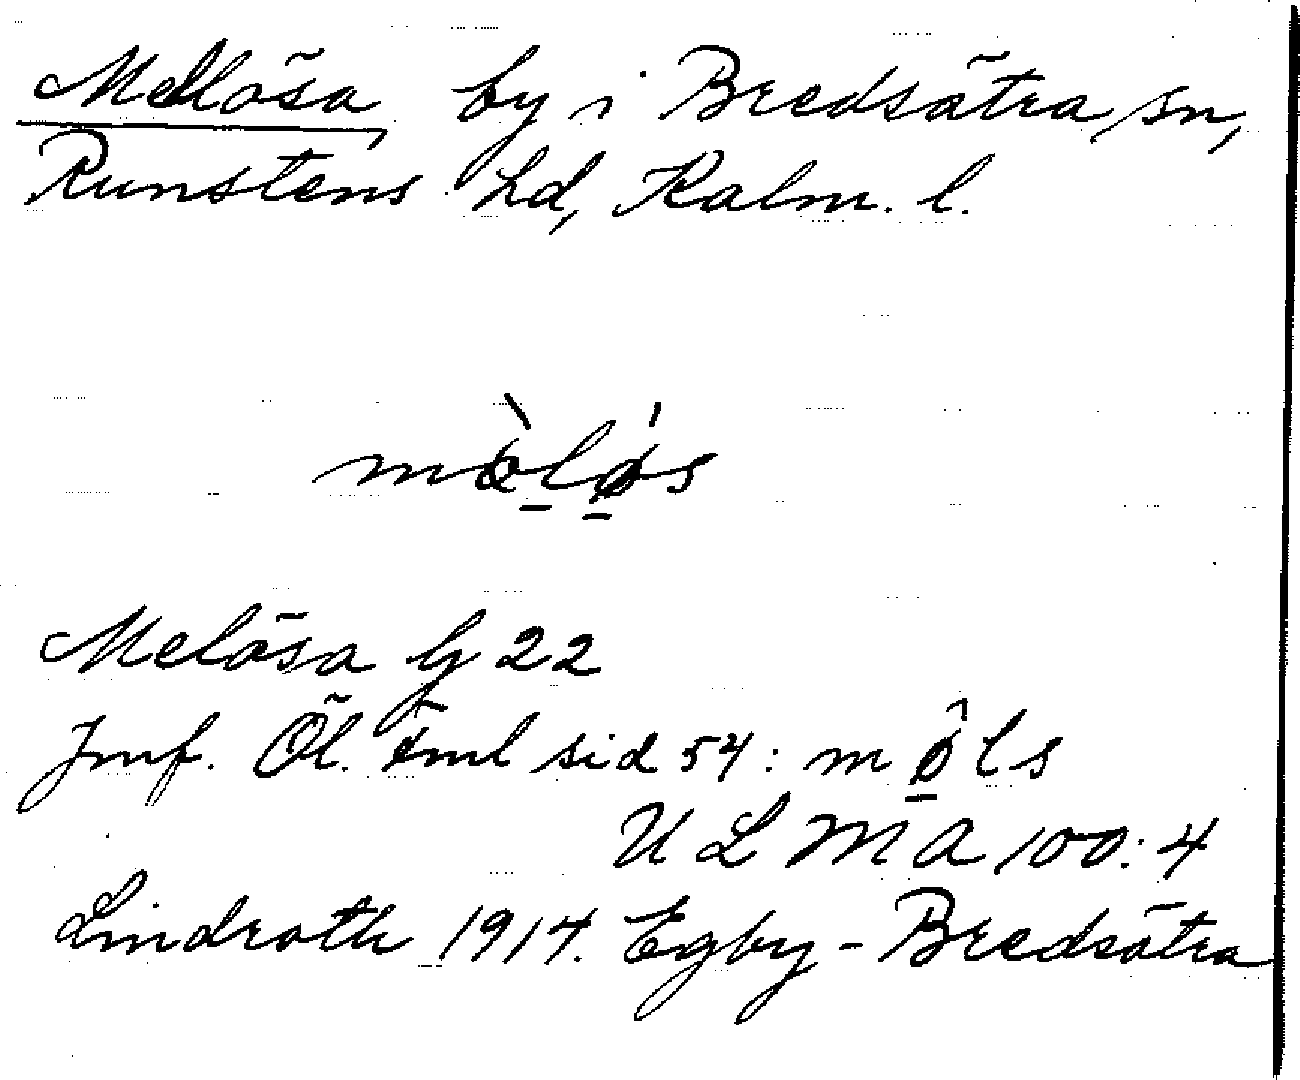 Mellösa, by i Bredsätra sn,
Runstens hd, Kalm. l.
Melösa G 22
Jmf. Öl. sid 54:
ULMA 100:4
Lindroth 1914. Egby-Bredsätra